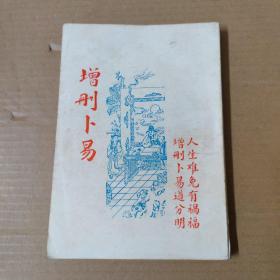 增刪卜易
人生难免有禍福
增刪卜易道分明